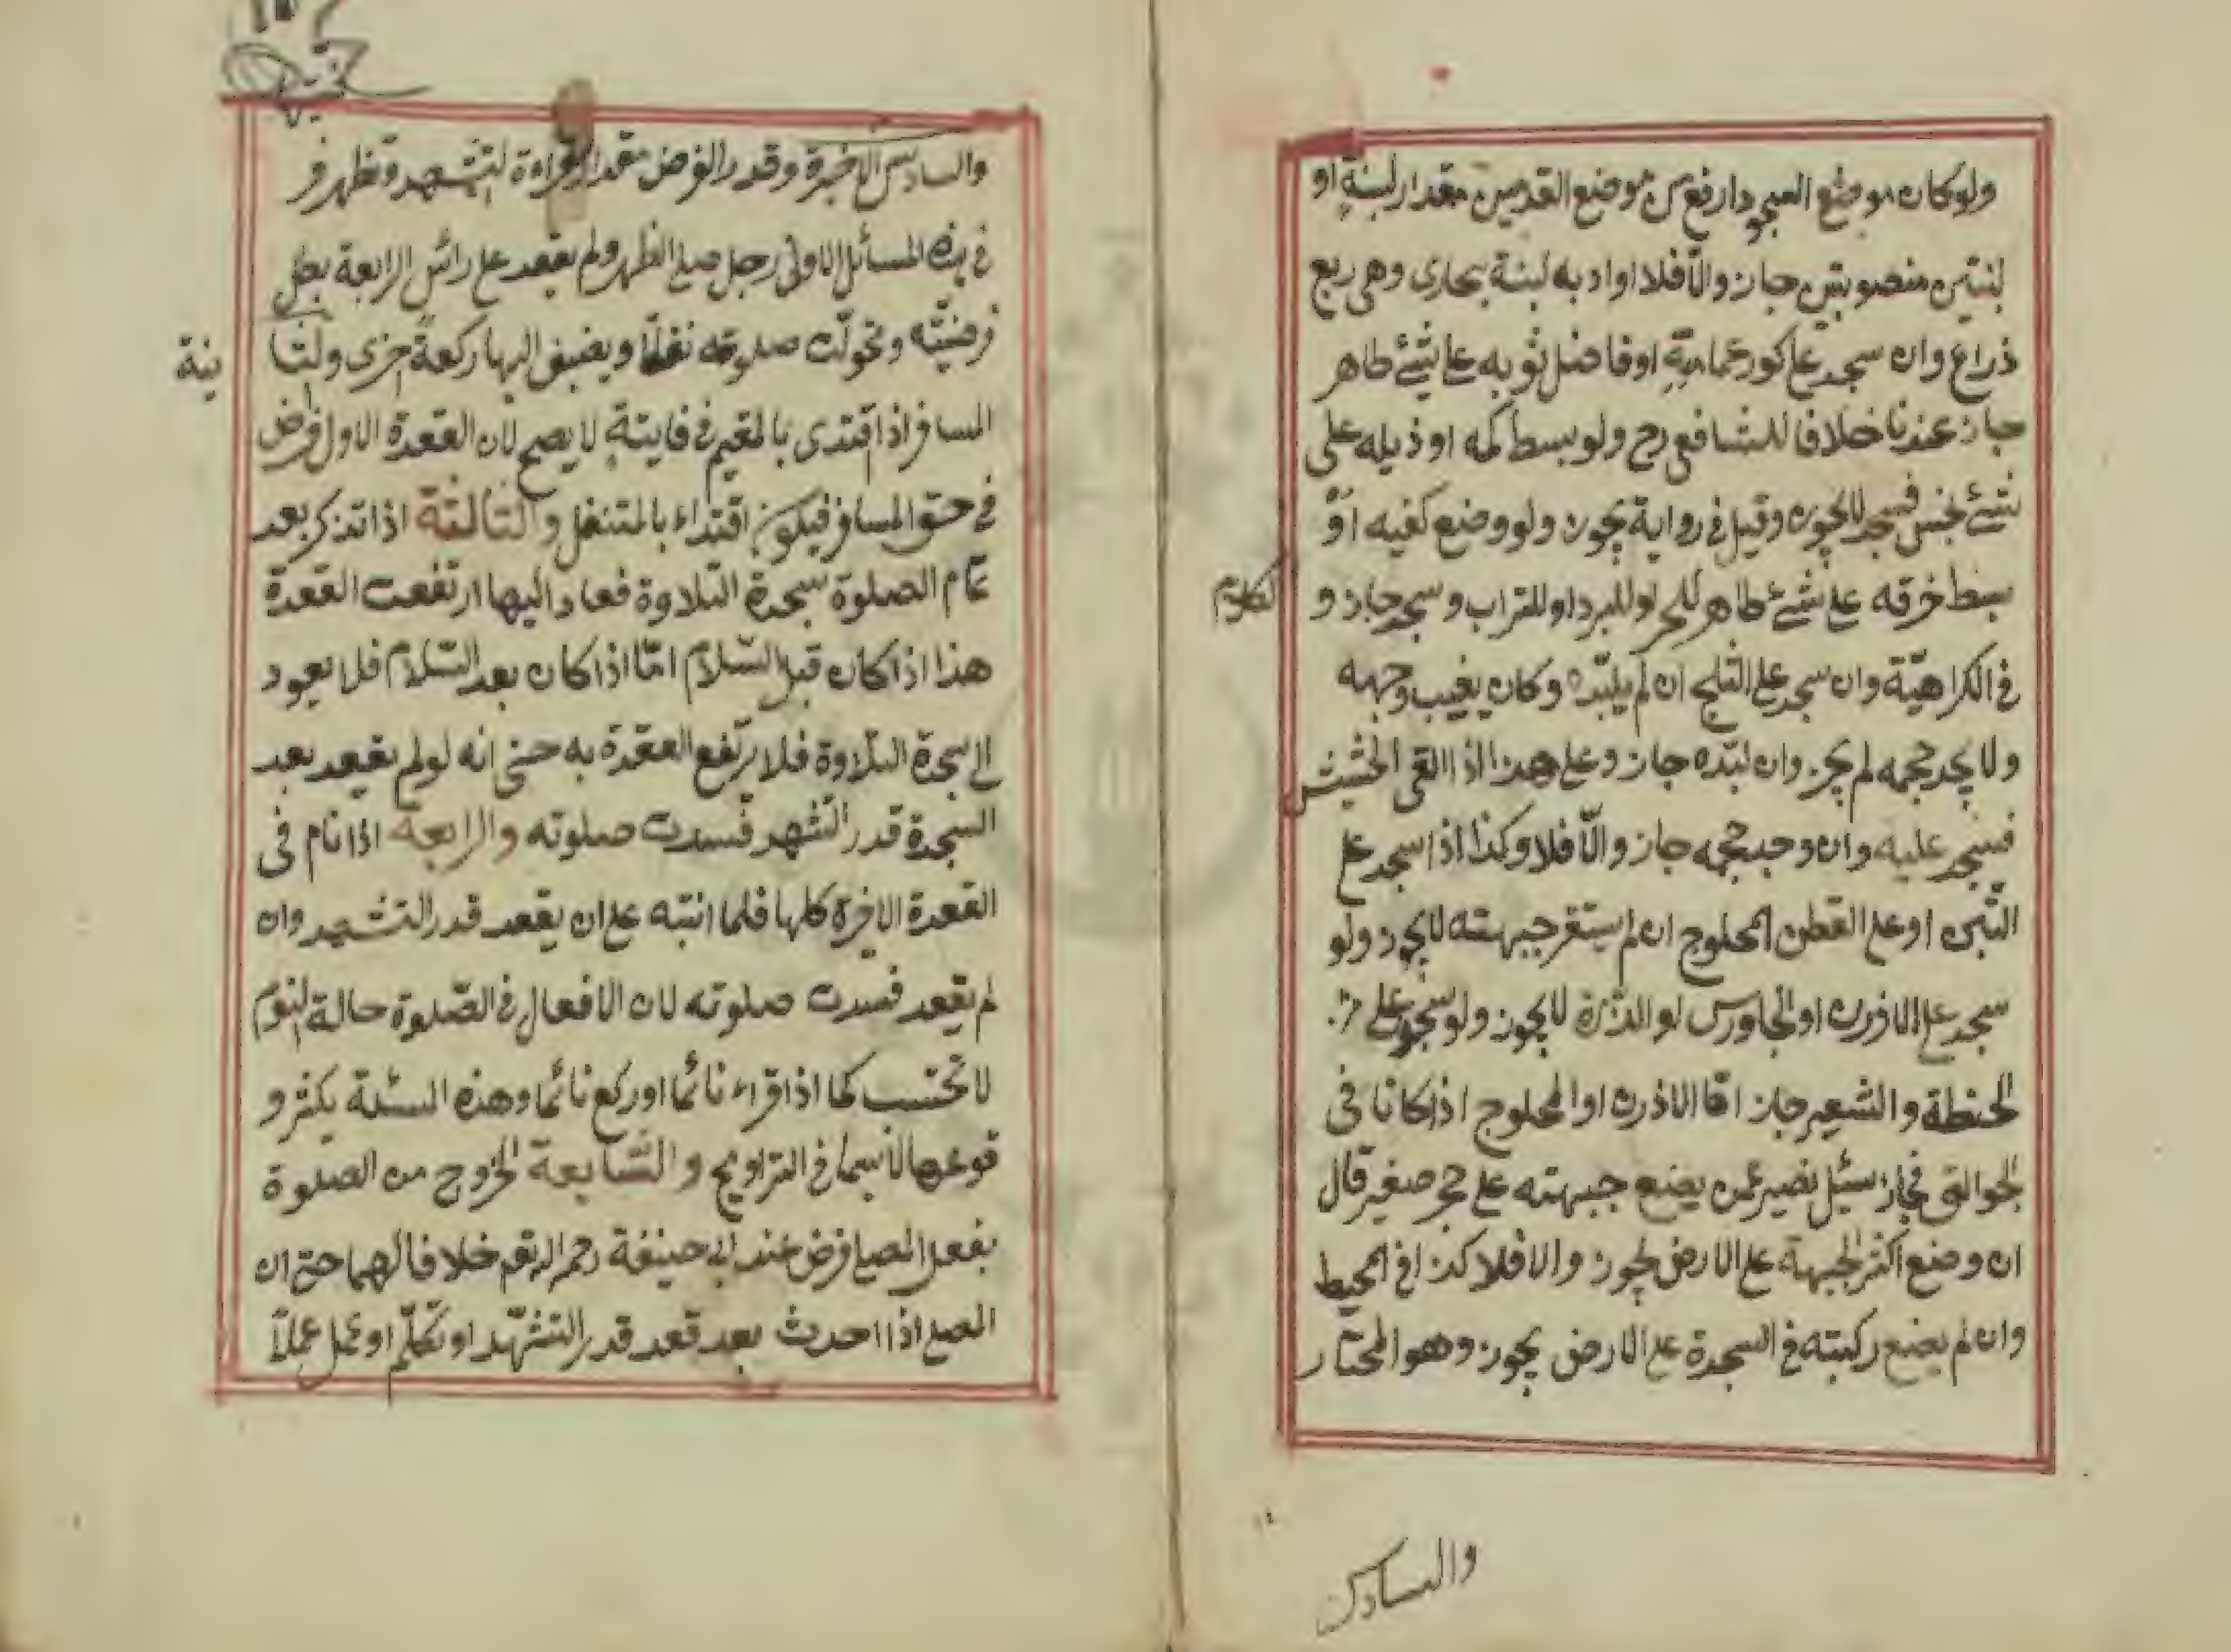 ولو كان موضع السجود ارفع من موضع القدمين مقدار لبنة او
لبنتين منصوبتين جاز والّا فلا اراد به لبنة بخارى وهى ربع
ذراع وان سجد على كور عمامته او فاضل ثوبه على شئ طاهر
جاز عندنا خلافا للشافعى رح ولو بسط كمه او ذيله على
شئ نجس فسجد لا يجوز وقيل فى رواية يجوز ولو وضع كفيه او
بسط خرقه على شئ طاهر للحر او للبرد او للتراب وسجد جاز و
الكلام
فى الكراهيّة وان سجد على الثلج ان لم يلبّده وكان يغيب وجهه
ولا يجد حجمه لم يجز وان لبّده جاز وعلى هذا اذا القى الحشيش
فسجد عليه وان وجد حجمه جاز والّا فلا وكذا اذا سجد على
التّبن او على القطن المحلوج ان لم يستقر جبهته لا يجوز ولو
سجد على الارز او الجاورس او الذرة لا يجوز ولو سجد على
الحنطة والشعير جاز امّا الارز او المحلوج اذا كانا فى
الجوالق فجاز سئل نصير عمن يضع جبهته على حجر صغير قال
ان وضع اكثر الجبهة على الارض يجوز والا فلا كذا فى المحيط
وان لم يضع ركبتيه فى السجدة على الارض يجوز وهو المختار
والسادس
والسادس الاخيرة وقدر الفرض مقدار قراءة التشهد وتظهر فر
فى هذه المسائل الاولى رجل صلى الظهر ولم يقعد على رأس الرابعة بطل
فرضيّته وتحوّلت صلوته نفلًا ويضيف اليها ركعةً اخرى والثا
نية
المسافر اذا اقتدى بالمقيم فى فايتة لا يصح لان القعدة الاولى فرض
فى حق المسافر فيكون اقتداء بالمتنفل والثالثة اذا تذكر بعد
تمام الصلوة سجدة التلاوة فعاد اليها ارتفعت القعدة
هذا اذا كان قبل السّلام امّا اذا كان بعد السّلام فلا يعود
الى سجدة التلاوة فلا يرتفع القعدة به حتى انه لو لم يقعد بعد
السجدة قدر التشهد فسدت صلوته والرابعة اذا نام فى
القعدة الاخيرة كلها فلما انتبه على ان يقعد قدر التشهد وان
لم يقعد فسدت صلوته لان الافعال فى الصّلوة حالة النوم
لا تحتسب كما اذا قراء نائما او ركع نائما وهذه المسئلة يكثر و
قوعها لا سيما فى التراويح والسّابعة الخروج من الصلوة
بفعل المصلى فرض عند ابى حنيفة رحمه الله تعم خلافا لهما حتى ان
المصلى اذا احدث بعد قعد قدر التشهّد او تكلّم او عمل عملًا